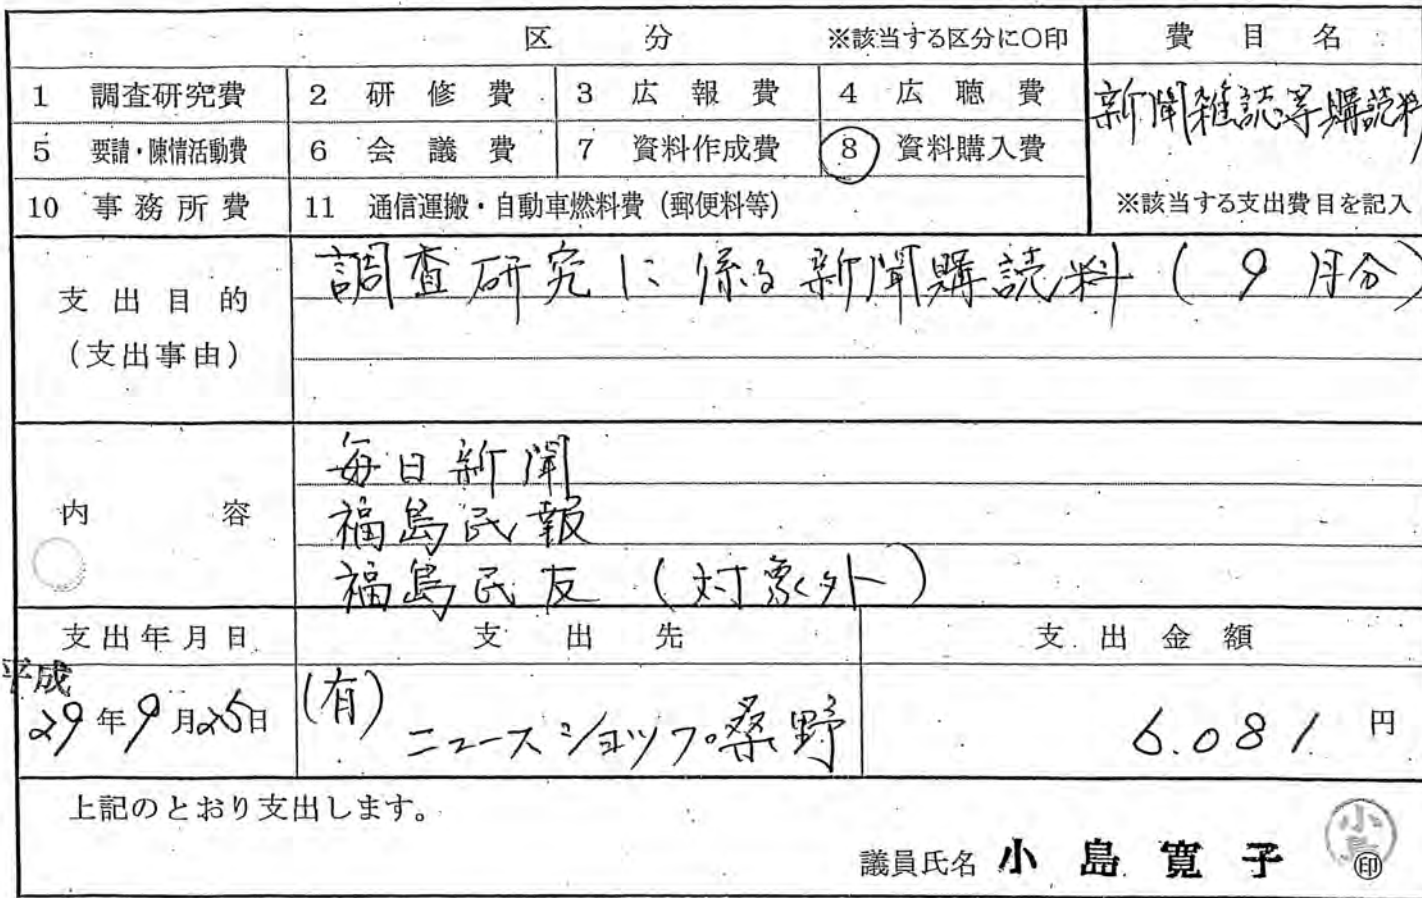 区 分 ※該当する区分に○印 費 目 名
1 調査研究費 2 研 修 費 3 広 報 費 4 広 聴 費
新聞雑誌等購読料
5 要請・陳情活動費 6 会 議 費 7 資料作成費 8 資料購入費
10 事 務 所 費 11 通信運搬・自動車燃料費(郵便料等) ※該当する支出費目を記入
調査研究に係る新聞購読料(9月分)
支 出 目 的
(支出事由)
毎日新聞
内 容
福島民報
福島民友(対象外)
支 出 年 月 日 支 出 先 支 出 金 額
平成
29年9月25日 (有)ニュースショップ桑野 6.081 円
上記のとおり支出します。
議員氏名 小 島 寛 子 小島 ㊞